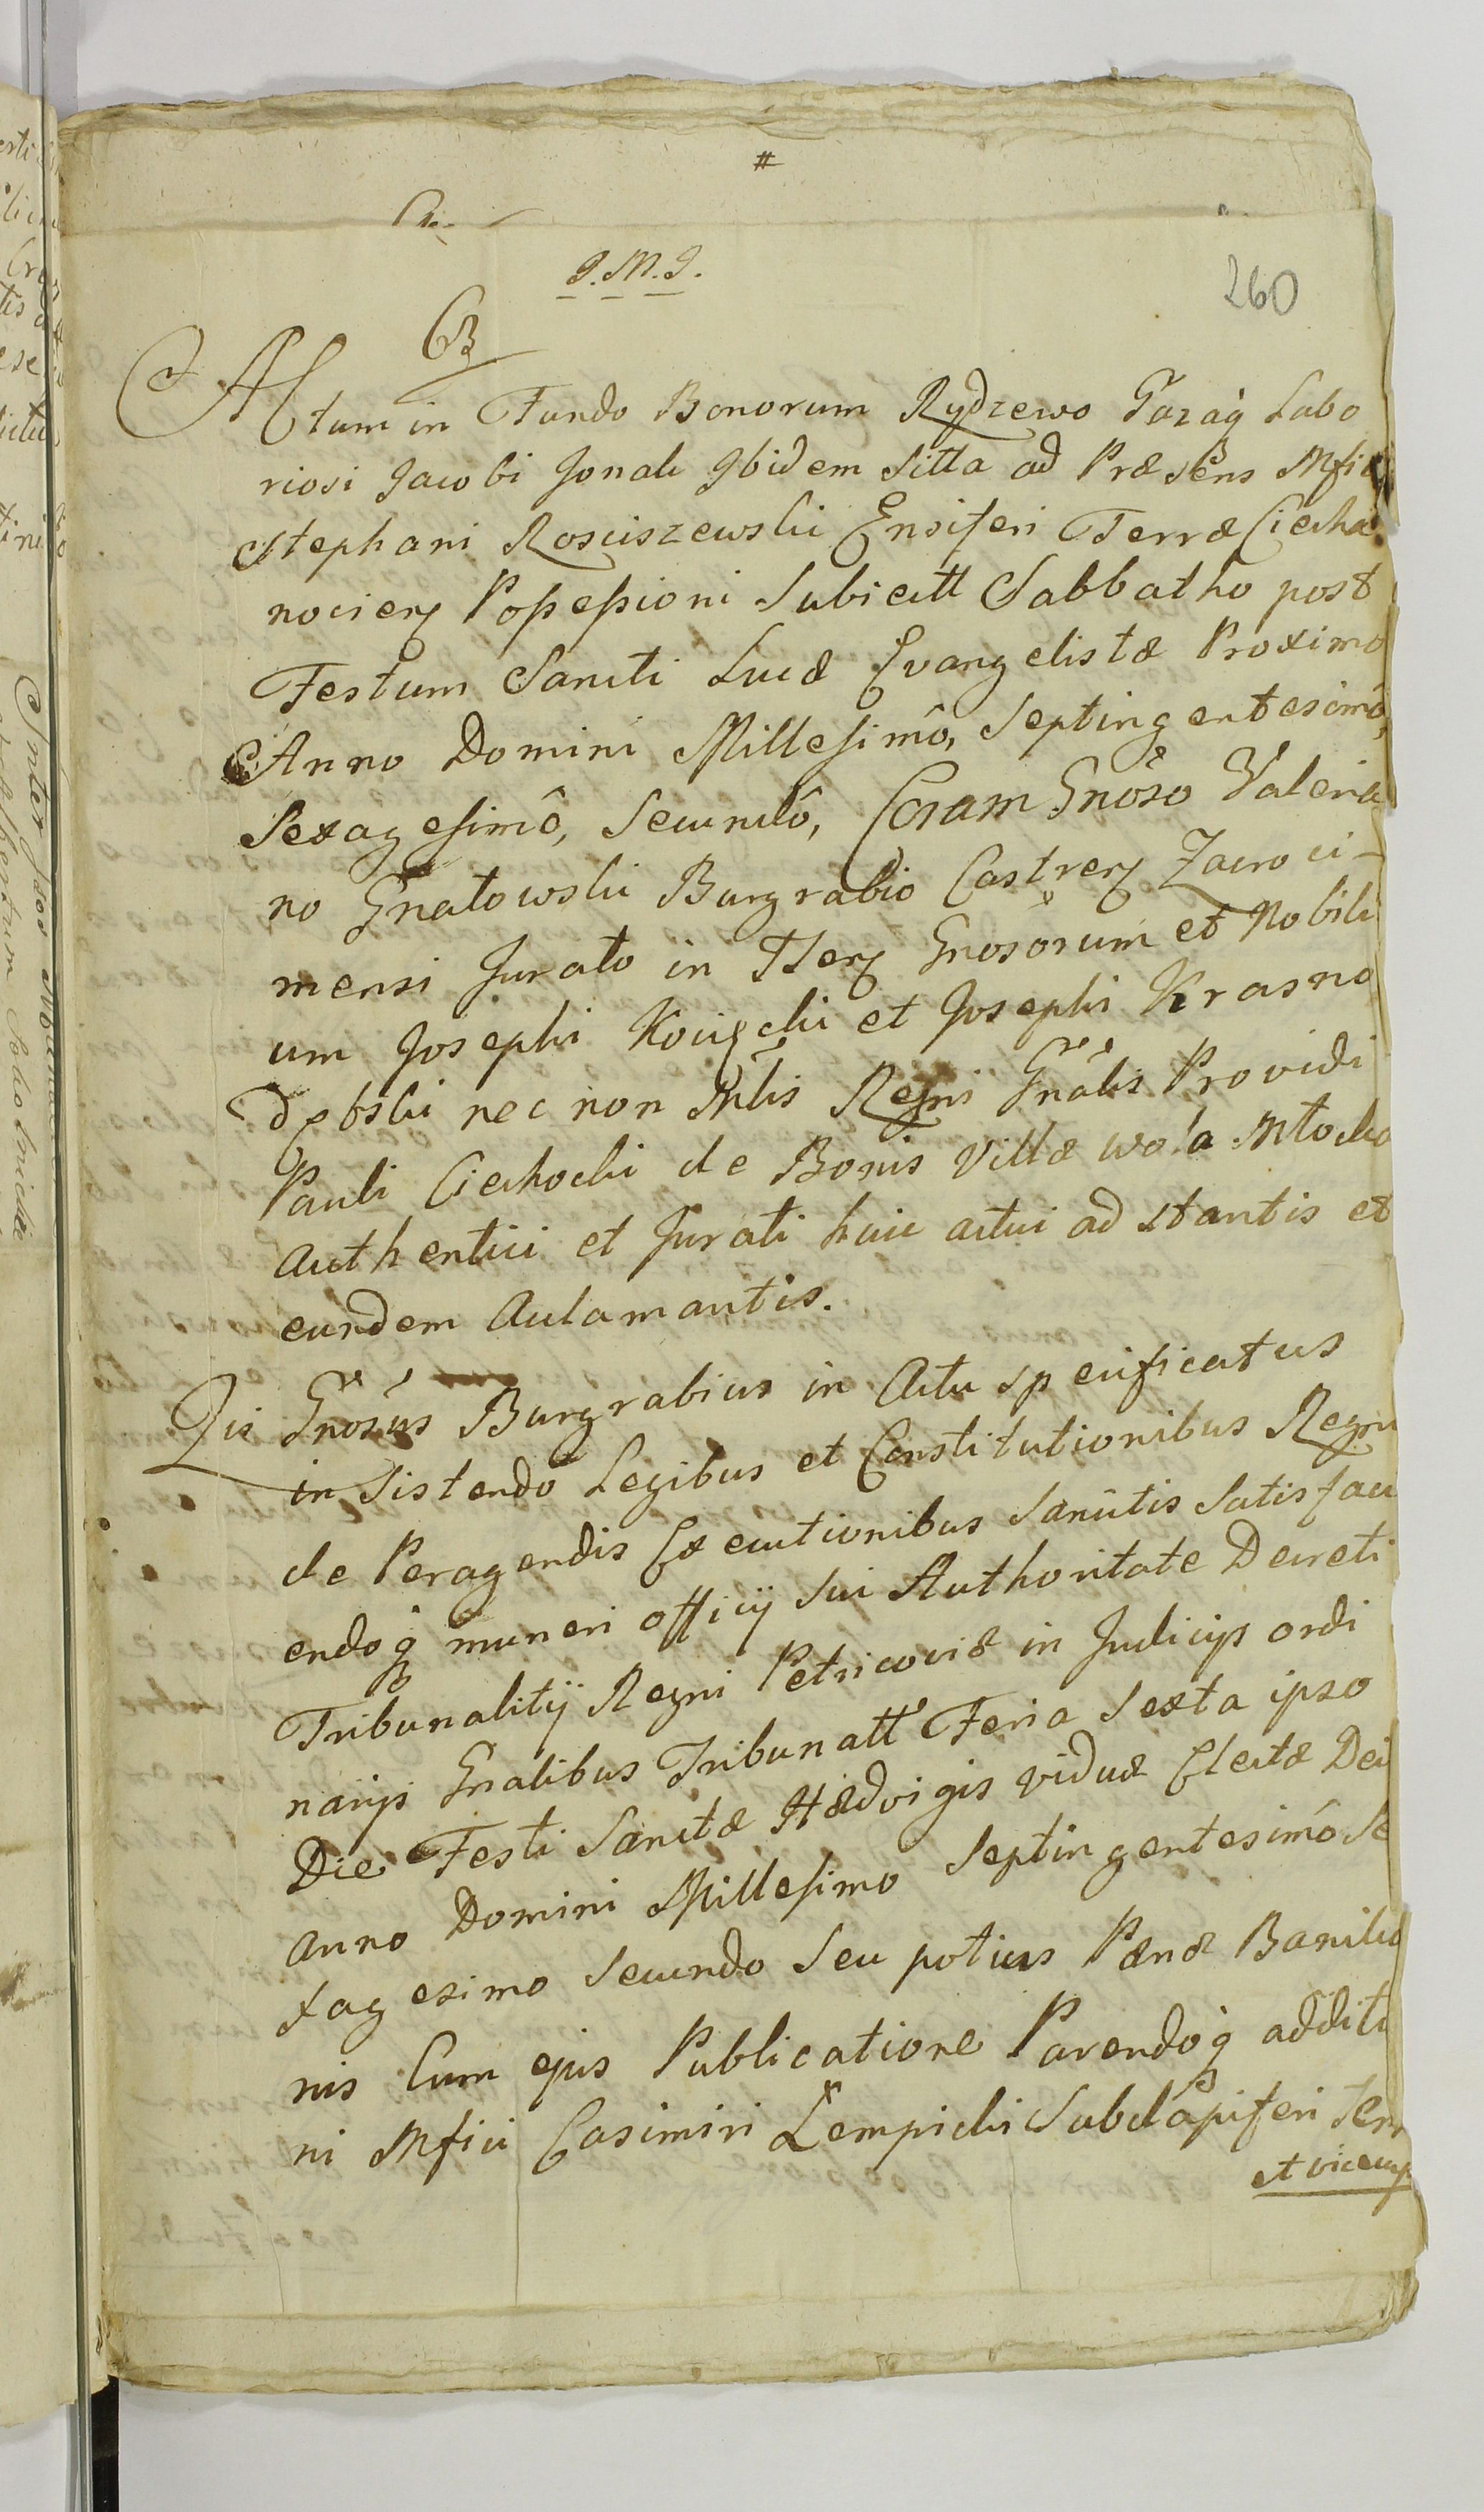 #
J. M. J.
260
Actum in Fundo Bonorum Rydzewo Gozdq́ Labo
riosi Jacobi Jonak Ibidem Sitta ad Præsens Mfici
Stephani Rosciszewski Ensiferi Terræ Ciecha
nocieng Possessioni Subiectt Sabbatho post
Festum Sancti Lucæ Evangelistæ Proximo
Anno Domini Millesimô, Septingentesimô,
Sexagesimô, Secundô, Coram Gnōso Valeria
no Gnatowski Burgrabio Castreng Zacroci-
mensi Jurato in Tterg Gnosorum et Nobili
um Josephi Koziçki et Josephi Krasno
dębski nec non Mlis Regni Gnālis Providi
Pauli Ciechocki de Bonis Villæ Wola Młocka
Authentici et Jurati huic actui ad stantis et
eundem Aclamantis.
Qui Gnōsus Burgrabius in Actu specificatus
in Sistendo Legibus et Constitutionibus Regni
de Peragendis Executionibus Sancitis Satisfaci
endoq́ muneri officij Sui Authoritate Decreti
Tribunalitij Regni Petricoviæ in Judicijs ordi
narijs Gnalibus Tribunatt Feria Sexta ipso
Die Festi Sanctæ Hædvigis viduæ Electæ Dei
Anno Domini Millesimo Septingentesimô Se
xagesimo Secundo Seu potius Pænæ Banitio
nis Cum ejus Publicatione Parendoq́ additi
ni Mfici Casimiri Łempicki Subdapiferi Terr
et vicecap